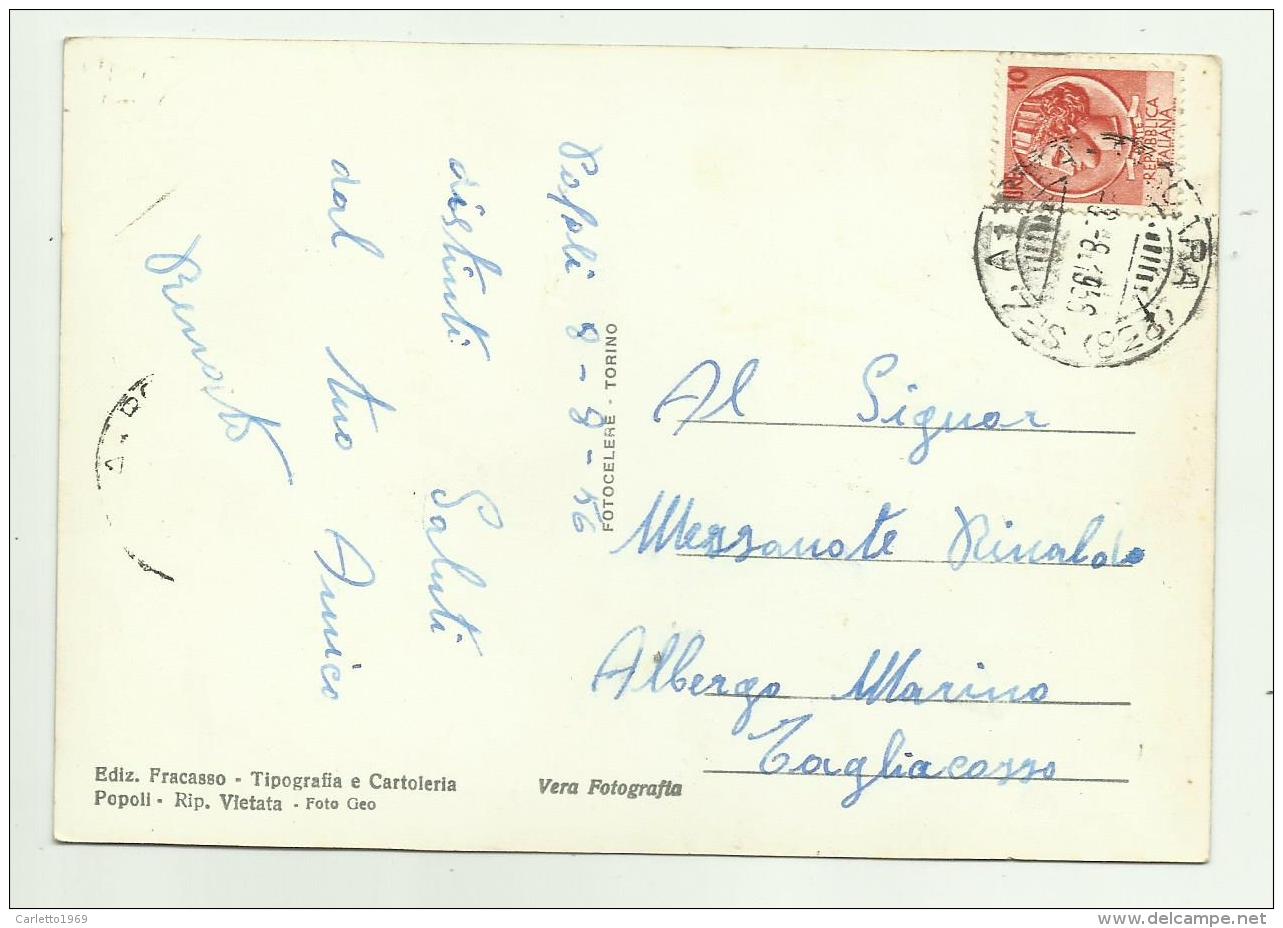 Popoli 8-8-56
distinti Saluti
dal tuo Amico
FOTOCELERE - TORINO
10
REPUBBLICA
ITALIANA
Al Signor
Mezzanote Rinaldo
Albergo Marino
Tagliacozzo
Ediz. Fracasso - Tipografia e Cartoleria
Popoli - Rip. Vietata - Foto Geo
Vera Fotografia
Carletto1969
www.delcampe.net